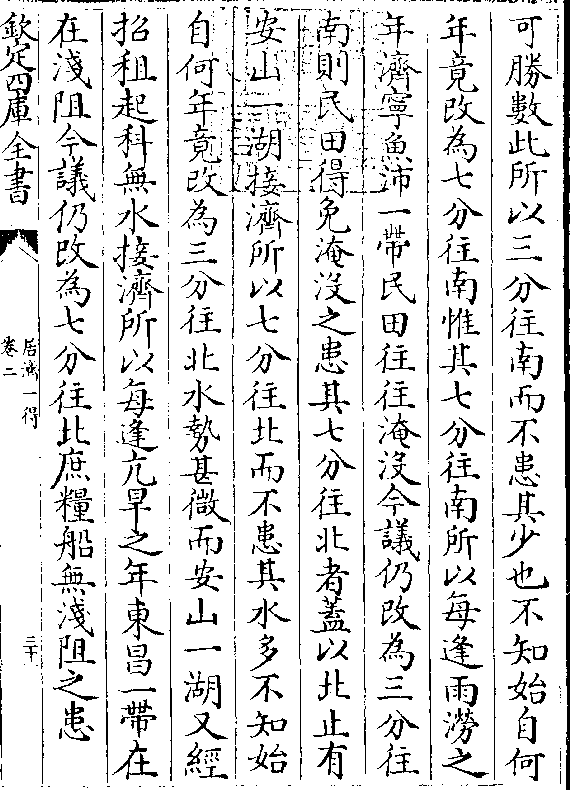 可勝數此所以三分往南而不患其少也不知始自何
年竟改為七分往南惟其七分往南所以每逢雨澇之
年濟寧魚沛一帶民田往往淹沒今議仍改為三分往
南則民田得免淹沒之患其七分往北者蓋以北止有
安山一湖接濟所以七分往北而不患其水多不知始
自何年竟改為三分往北水勢甚微而安山一湖又經
招租起科無水接濟所以每逢亢旱之年東昌一帶在
在淺阻今議仍改為七分往北庶糧船無淺阻之患
欽定四庫全書
居濟一得
卷二
三十